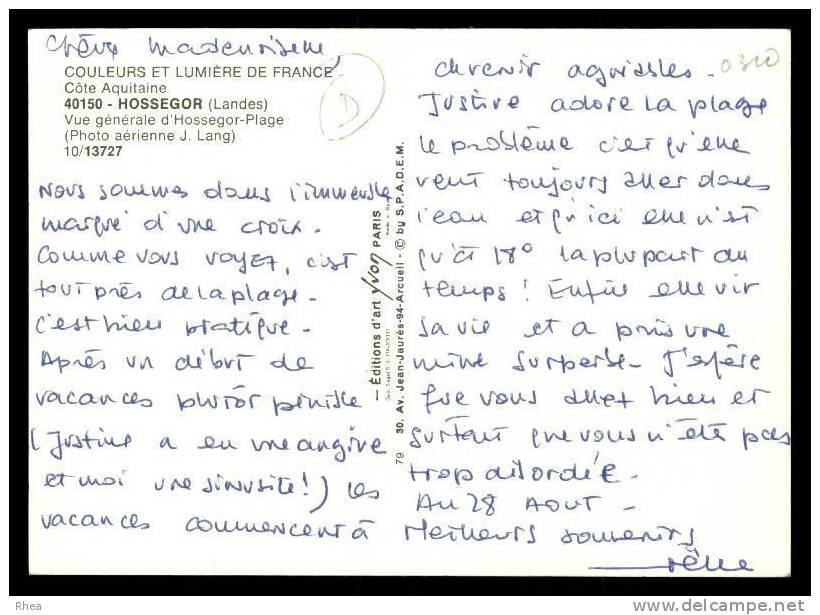 Chère Mademoiselle,
COULEURS ET LUMIÈRE DE FRANCE
Côte Aquitaine
40150 - HOSSEGOR (Landes)
Vue générale d'Hossegor-Plage
(Photo aérienne J. Lang)
10/13727
D
Nous sommes dans l'immeuble
marqué d'une croix.
Comme vous voyez, c'est
tout près de la plage.
C'est bien pratique.
Après un début de
vacances plutôt pénible
(Justine a eu une angine
et moi une sinusite!) les
vacances commencent à
79
— Éditions d'art Yvon PARIS
30, Av. Jean-Jaurès-94-Arcueil - © by S.P.A.D.E.M.
0310
devenir agréables.
Justine adore la plage
le problème c'est qu'elle
veut toujours aller dans
l'eau et qu'ici elle n'est
qu'à 18° la plupart du
temps! Enfin elle vit
sa vie et a pris une
mine superbe. J'espère
que vous allez bien et
surtout que vous n'êtes pas
trop débordée.
Au 28 Août -
Meilleurs souvenirs
Rhea
http://www.delcampe.net